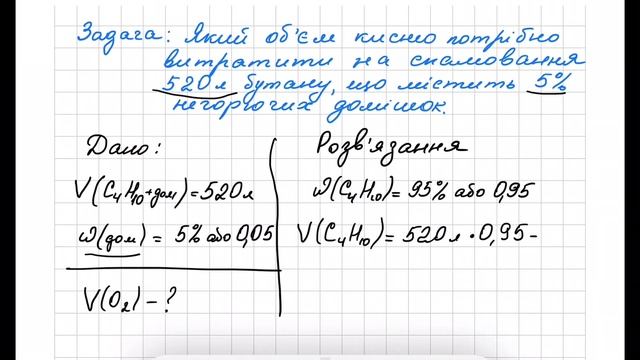 Задача: Який об'єм кисню потрібно
витратити на спалювання
520 л бутану, що містить 5%
негорючих домішок.
Дано:
V(C₄H₁₀+дом)=520л
ω(дом) = 5% або 0,05
V(O₂) – ?
Розв'язання
ω(C₄H₁₀)= 95% або 0,95
V(C₄H₁₀)= 520л·0,95 –